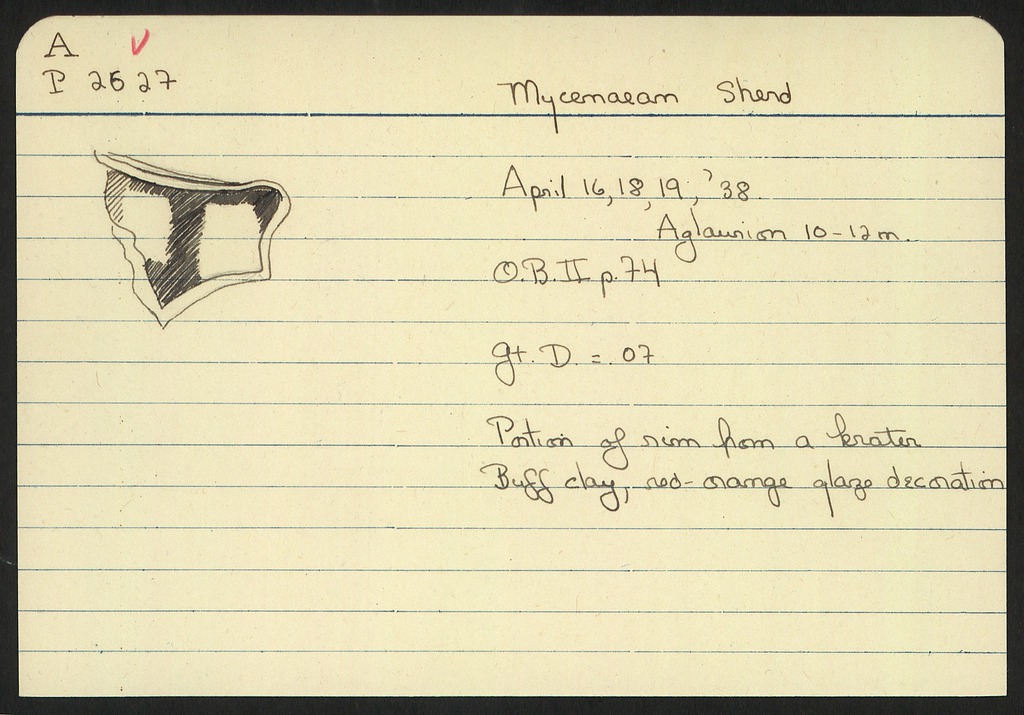 A
P 2627
Mycenaean Sherd
April 16, 18, 19, '38
Aglaurion 10-12 m.
O.B. II p. 74
gt. D. = .07
Portion of rim from a krater
Buff clay, red-orange glaze decoration